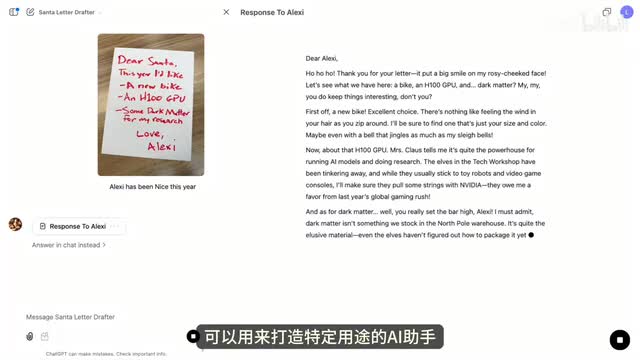 Santa Letter Drafter
Response To Alexi
L
bilibili
Dear Santa,
This year I'd like
- A new bike
- An H100 GPU
- Some Dark Matter
for my research
Love,
Alexi
Alexi has been Nice this year
Response To Alexi
Answer in chat instead >
Dear Alexi,
Ho ho ho! Thank you for your letter—it put a big smile on my rosy-cheeked face!
Let's see what we have here: a bike, an H100 GPU, and... dark matter? My, my,
you do keep things interesting, don't you?
First off, a new bike! Excellent choice. There's nothing like feeling the wind in
your hair as you zip around. I'll be sure to find one that's just your size and color.
Maybe even with a bell that jingles as much as my sleigh bells!
Now, about that H100 GPU. Mrs. Claus tells me it's quite the powerhouse for
running AI models and doing research. The elves in the Tech Workshop have
been tinkering away, and while they usually stick to toy robots and video game
consoles, I'll make sure they pull some strings with NVIDIA—they owe me a
favor from last year's global gaming rush!
And as for dark matter... well, you really set the bar high, Alexi! I must admit,
dark matter isn't something we stock in the North Pole warehouse. It's quite the
elusive material—even the elves haven't figured out how to package it yet
Message Santa Letter Drafter
可以用来打造特定用途的AI助手
ChatGPT can make mistakes. Check important info.